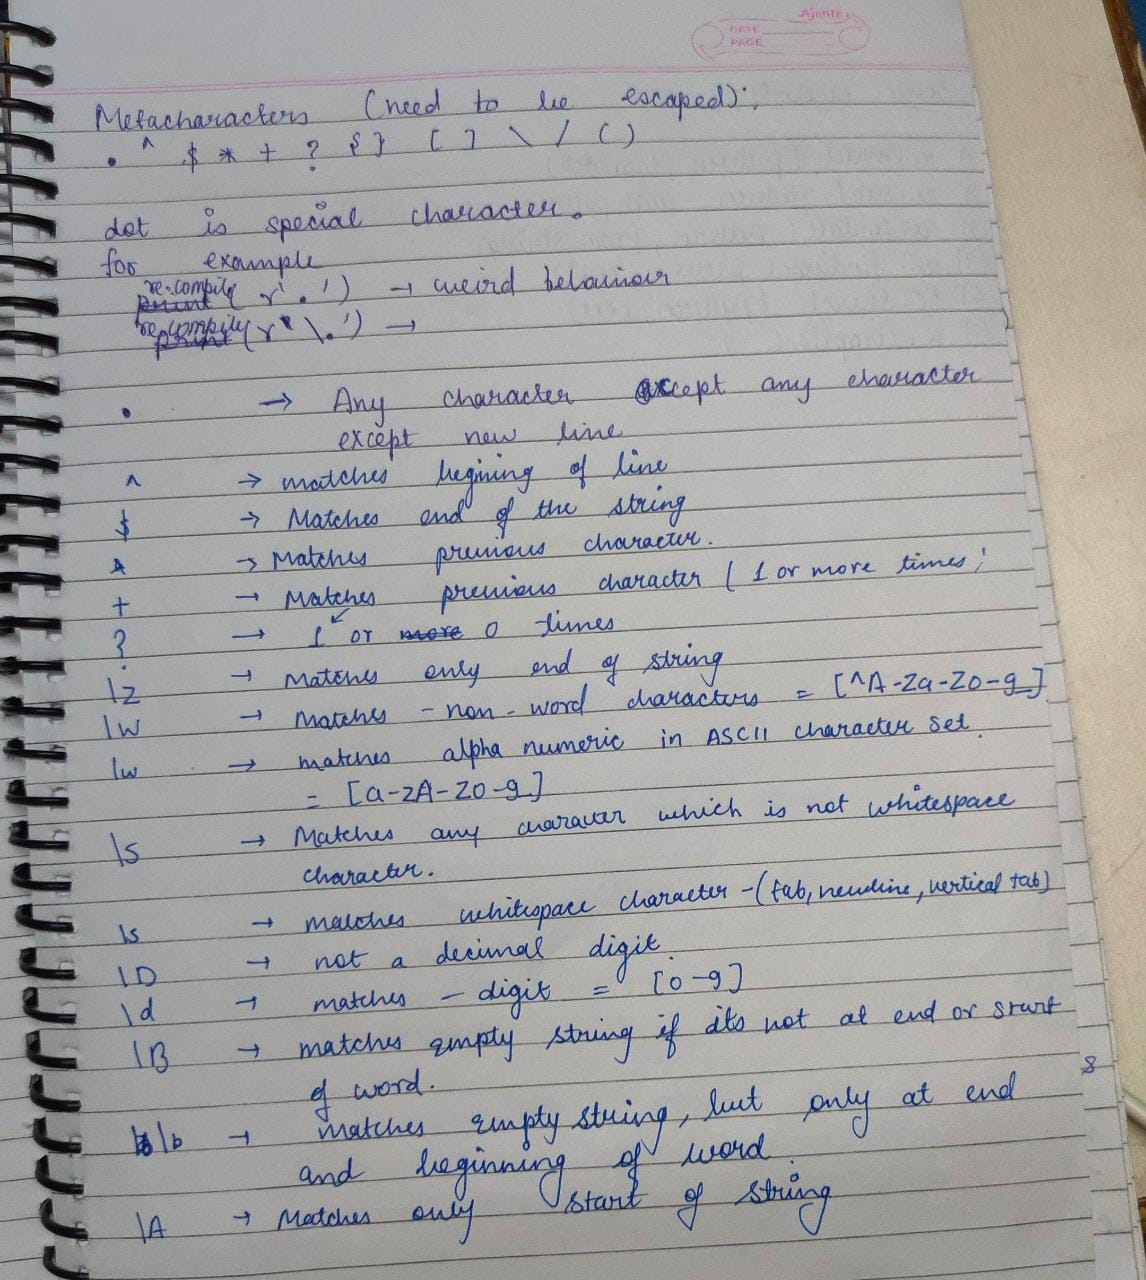 Ajanta
DATE
PAGE
Metacharacters (need to be escaped):
. ^ $ * + ? { } [ ] \ / ( )
dot is special character.
for example
re.compile
print ( r'.') → weird behaviour
re.compile
print (r"\.') →
. → Any character except any character
except new line
^ → matches begining of line
$ → Matches end of the string
* → Matches previous character.
+ → Matches previous character ( 1 or more times;
? → 1 or more 0 times
\z → Matches only end of string
\W → Matches - non - word characters = [^A-Za-z0-9_]
\w → matches alpha numeric in ASCII character set.
= [a-zA-Z0-9_]
\S → Matches any character which is not whitespace
character.
\s → matches whitespace character - (tab, newline, vertical tab)
\D → not a decimal digit.
\d → matches - digit = [0-9]
\B → matches empty string if its not at end or start
of word.
\b → matches empty string, but only at end
and beginning of word.
\A → Matches only start of string